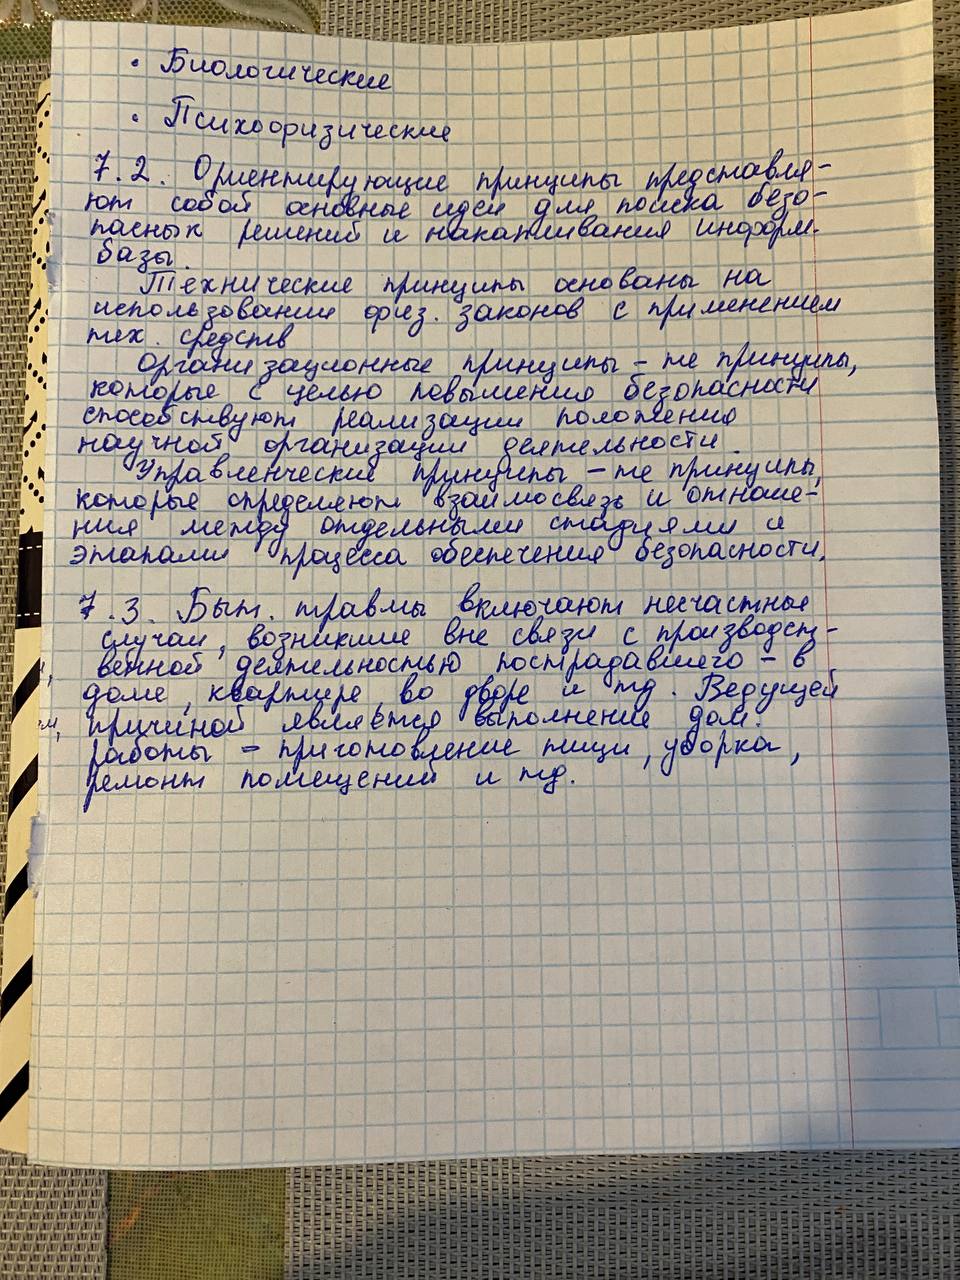 • Биологические
• Психофизические
7.2. Ориентирующие принципы представля-
ют собой основные идеи для поиска безо-
пасных решений и накапливания информ.
базы.
Технические принципы основаны на
использовании физ. законов с применением
тех. средств
Организационные принципы – те принципы,
которые с целью повышения безопасности
способствуют реализации положения
научной организации деятельности.
Управленческие принципы – те принципы,
которые определяют взаимосвязь и отноше-
ния между отдельными стадиями и
этапами процесса обеспечения безопасности.
7.3. Быт. травмы включают несчастные
случаи, возникшие вне связи с производст-
венной деятельностью пострадавшего – в
доме, квартире во дворе и тд. Ведущей
причиной является выполнение дом.
работы – приготовление пищи, уборка,
ремонт помещений и тд.